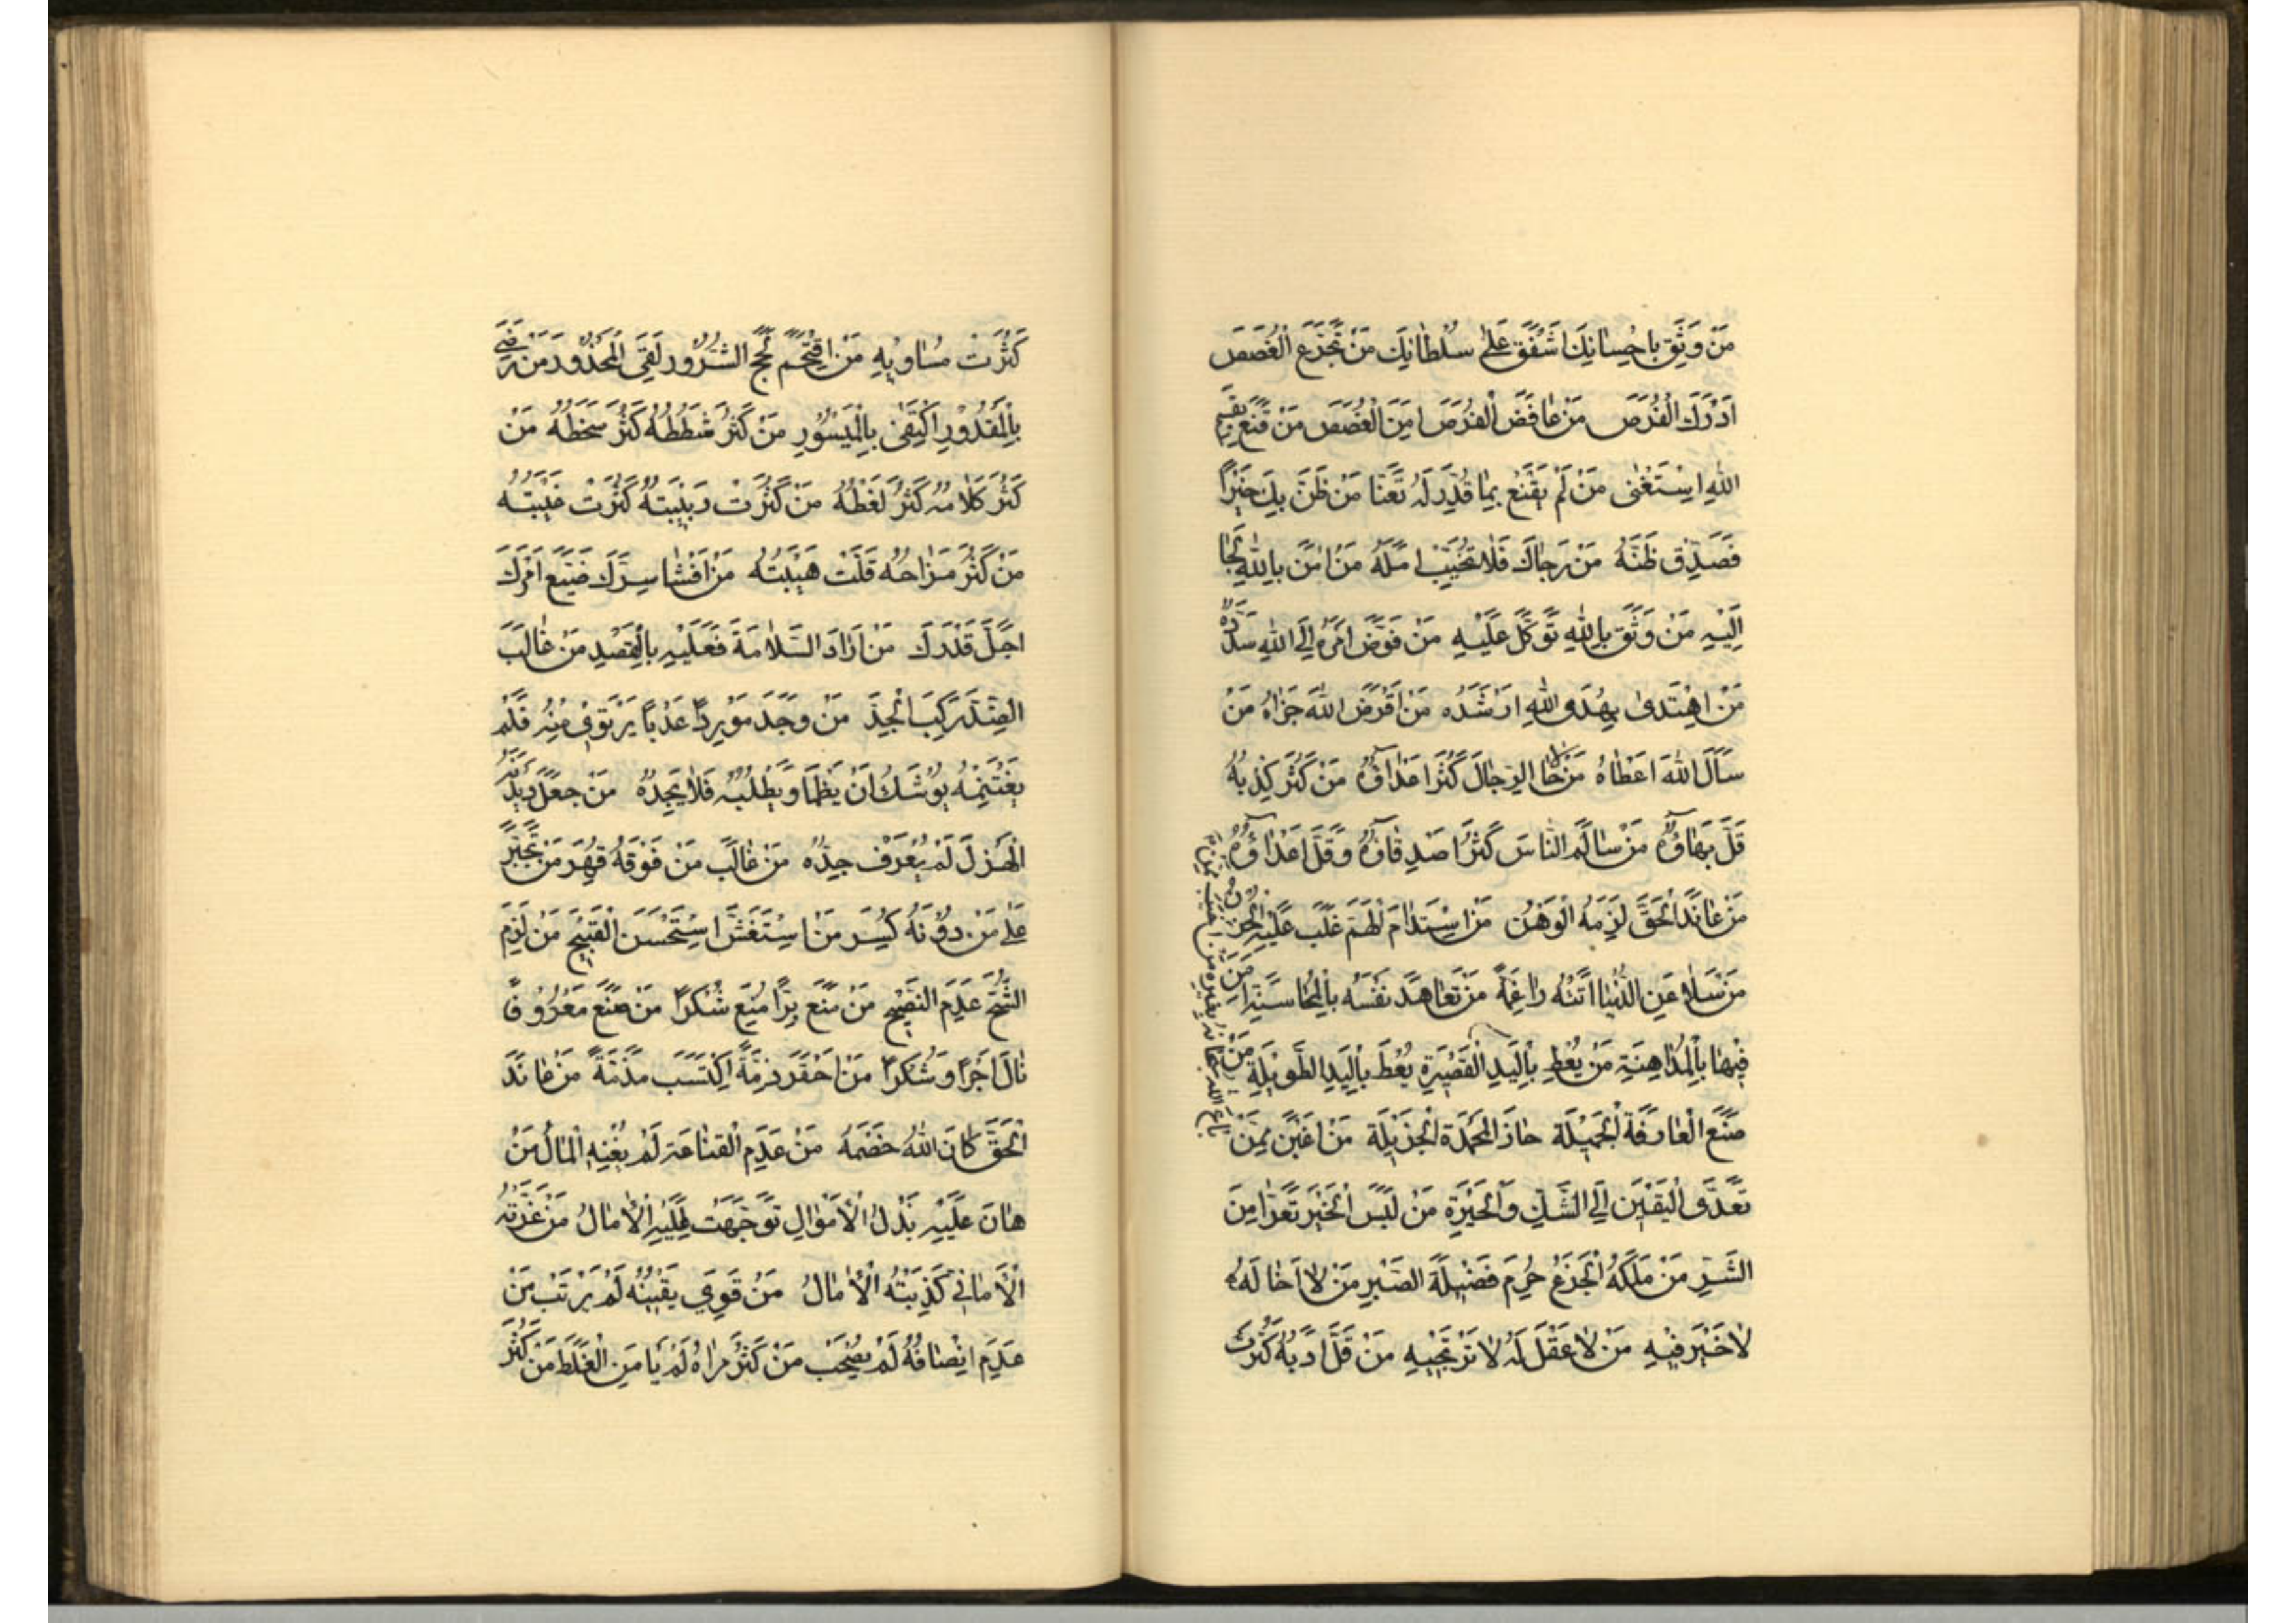 مَنْ وَثِقَ بِاِحْسٰانِكَ اَشْفَقَ عَلىٰ سُلْطٰانِكَ مَنْ تَجَرَّعَ الْغُصَصَ
اَدْرَكَ الْفُرَصَ مَنْ غٰافَصَ الْفُرَصَ اَمِنَ الْغُصَصَ مَنْ قَنَعَ بِقِسْمِ
اللهِ اسْتَغْنىٰ مَنْ لَمْ يَقْنَعْ بِمٰا قُدِّرَ لَهُ تَعَنّٰا مَنْ ظَنَّ بِكَ خَيْرًا
فَصَدِّقْ ظَنَّهُ مَنْ رَجٰاكَ فَلٰا تُخَيِّبْ اَمَلَهُ مَنْ اٰمَنَ بِاللهِ لَجَا
اِلَيْهِ مَنْ وَثِقَ بِاللهِ تَوَكَّلَ عَلَيْهِ مَنْ فَوَّضَ اَمْرَهُ اِلَى اللهِ سَدَّدَهُ
مَنِ اهْتَدىٰ بِهُدَى اللهِ اَرْشَدَهُ مَنْ اَقْرَضَ اللهَ جَزٰاهُ مَنْ
سَاَلَ اللهَ اَعْطٰاهُ مَنْ لٰاحَا الرِّجٰالَ كَثُرَ اَعْدٰاؤُهُ مَنْ كَثُرَ كِذْبُهُ
قَلَّ بَهٰاؤُهُ مَنْ سٰالَمَ النّٰاسَ كَثُرَ اَصْدِقٰاؤُهُ وَقَلَّ اَعْدٰاؤُهُ
مَنْ عٰانَدَ الْحَقَّ لَزِمَهُ الْوَهْنُ مَنِ اسْتَدٰامَ الْهَمَّ غَلَبَ عَلَيْهِ الْحُزْنُ
مَنْ سَلٰا عَنِ الدُّنْيٰا اَتَتْهُ رٰاغِمَةً مَنْ تَعٰاهَدَ نَفْسَهُ بِالْمُحٰاسَبَةِ اَمِنَ
فِيهٰا بِالْمُدٰاهِنَةِ مَنْ يُعْطِ بِالْيَدِ الْقَصِيرَةِ يُعْطَ بِالْيَدِ الطَّوِيلَةِ مَنْ
صَنَعَ الْعٰارِفَةَ الْجَمِيلَةَ حٰازَ الْمَحْمَدَةَ الْجَزِيلَةَ مَنْ اَغْبَنُ مِمَّنْ
تَعَدَّى الْيَقِينَ اِلَى الشَّكِّ وَالْحَيْرَةِ مَنْ لَبِسَ الْخَيْرَ تَعَرّٰا مِنَ
الشَّرِّ مَنْ مَلَكَهُ الْجَزَعُ حُرِمَ فَضِيلَةَ الصَّبْرِ مَنْ لٰا اَخٰا لَهُ
لٰا خَيْرَ فِيهِ مَنْ لٰا عَقْلَ لَهُ لٰا تَرْتَجِيهِ مَنْ قَلَّ اَدَبُهُ كَثُرَتْ
بٰاعَ اللهَ سُبْحٰانَهُ بِغَيْرِهِ
كَثُرَتْ مَسٰاوِيهِ مَنِ اقْتَحَمَ لُجَجَ الشُّرُورِ لَقِيَ الْمَحْذُورَ مَنْ رَضِيَ
بِالْمَقْدُورِ اكْتَفىٰ بِالْمَيْسُورِ مَنْ كَثُرَ شَطَطُهُ كَثُرَ سَخَطُهُ مَنْ
كَثُرَ كَلٰامُهُ كَثُرَ لَغَطُهُ مَنْ كَثُرَتْ رِيبَتُهُ كَثُرَتْ غِيبَتُهُ
مَنْ كَثُرَ مِزٰاحُهُ قَلَّتْ هَيْبَتُهُ مَنْ اَفْشٰا سِرَّكَ ضَيَّعَ اَمْرَكَ
اَجَلَّ قَدْرَكَ مَنْ اَرٰادَ السَّلٰامَةَ فَعَلَيْهِ بِالْقَصْدِ مَنْ غٰالَبَ
الضِّدَّ رَكِبَ الْجِدَّ مَنْ وَجَدَ مَوْرِدًا عَذْبًا يَرْتَوِي مِنْهُ فَلَمْ
يَغْتَنِمْهُ يُوشَكُ اَنْ يَظْمَا وَيَطْلُبُهُ فَلٰا يَجِدُهُ مَنْ جَعَلَ دَيْدَنَهُ
الْهَزْلَ لَمْ يُعْرَفْ جِدُّهُ مَنْ غٰالَبَ مَنْ فَوْقَهُ قُهِرَ مَنْ تَجَبَّرَ
عَلىٰ مَنْ دُونَهُ كُسِرَ مَنِ اسْتَغَشَّ اسْتَحْسَنَ الْقَبِيحَ مَنْ لَزِمَ
الشُّحَّ عَدِمَ النَّصِيحَ مَنْ مَنَعَ بِرًّا مُنِعَ شُكْرًا مَنْ صَنَعَ مَعْرُوفًا
نٰالَ اَجْرًا وَشُكْرًا مَنْ اَخْفَرَ ذِمَّةً اِكْتَسَبَ مَذَمَّةً مَنْ عٰانَدَ
الْحَقَّ كٰانَ اللهُ خَصْمَهُ مَنْ عَدِمَ الْقَنٰاعَةَ لَمْ يُغْنِهِ الْمٰالُ مَنْ
هٰانَ عَلَيْهِ بَذْلُ الْاَمْوٰالِ تَوَجَّهَتْ اِلَيْهِ الْاٰمٰالُ مَنْ غَرَّتْهُ
الْاَمٰانِيُّ كَذَبَتْهُ الْاٰمٰالُ مَنْ قَوِيَ يَقِينُهُ لَمْ يَرْتَبْ مَنْ
عَدِمَ اِنْصٰافُهُ لَمْ يُصْحَبْ مَنْ كَثُرَ مِرٰاهُ لَمْ يَامَنِ الْغَلَطَ مَنْ كَثُرَ